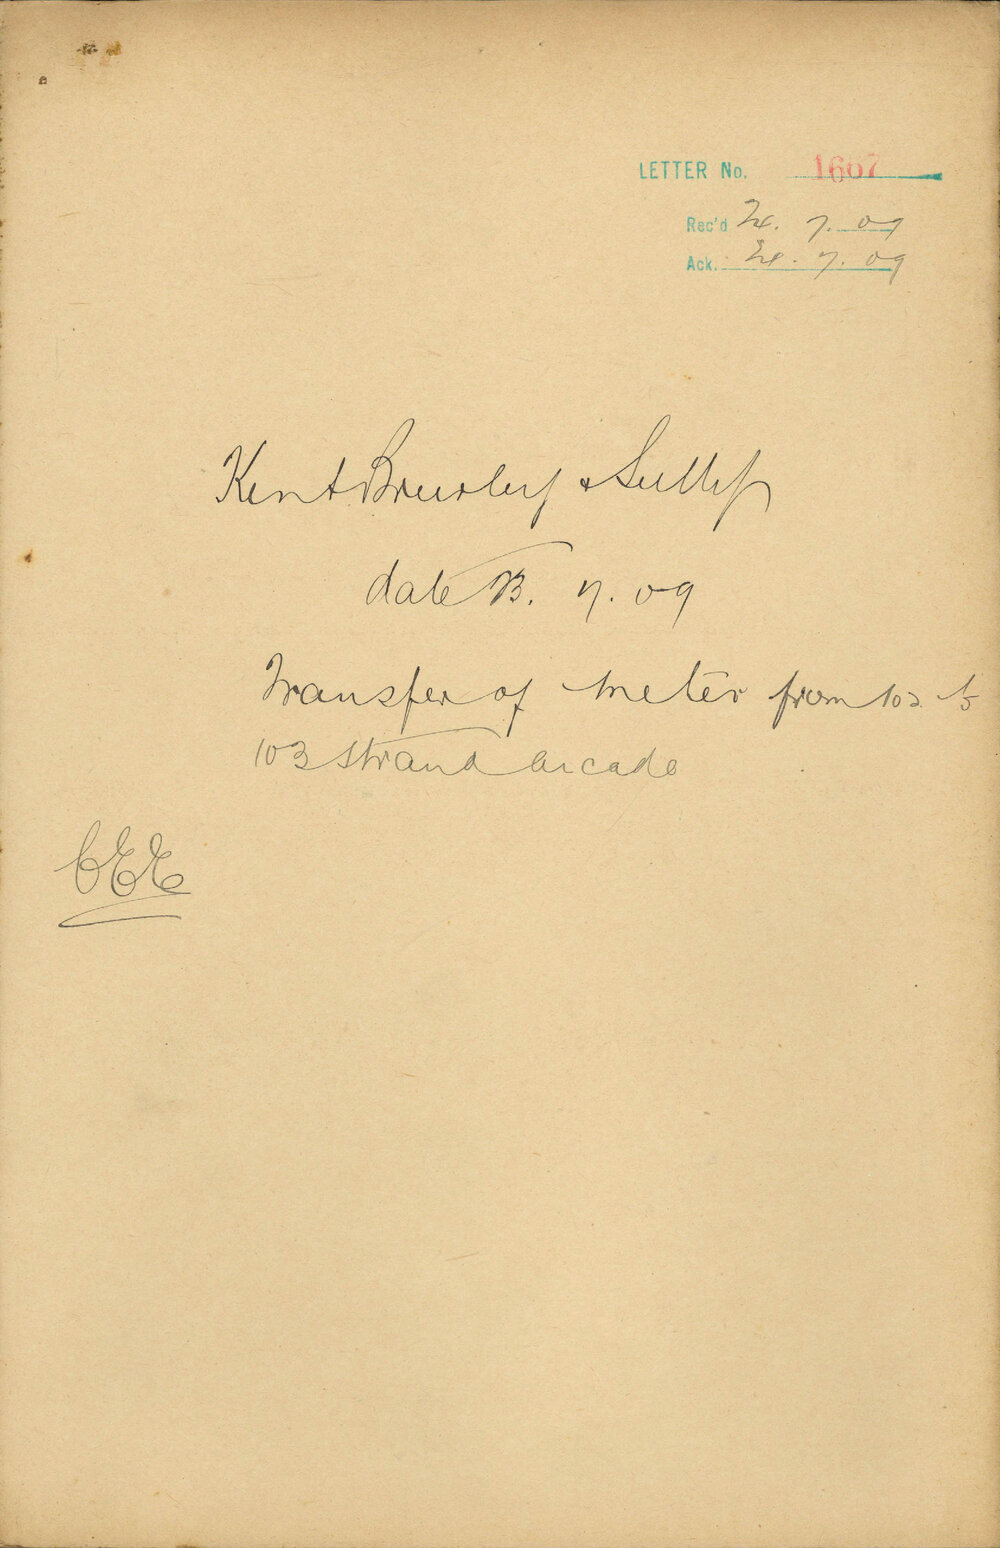 LETTER No. 1667
Rec'd 24. 7. 09
Ack. 24. 7. 09
Kent Brierley & Sully
date 23. 7. 09
Transfer of meter from 102 to
103 Strand Arcade
CEE